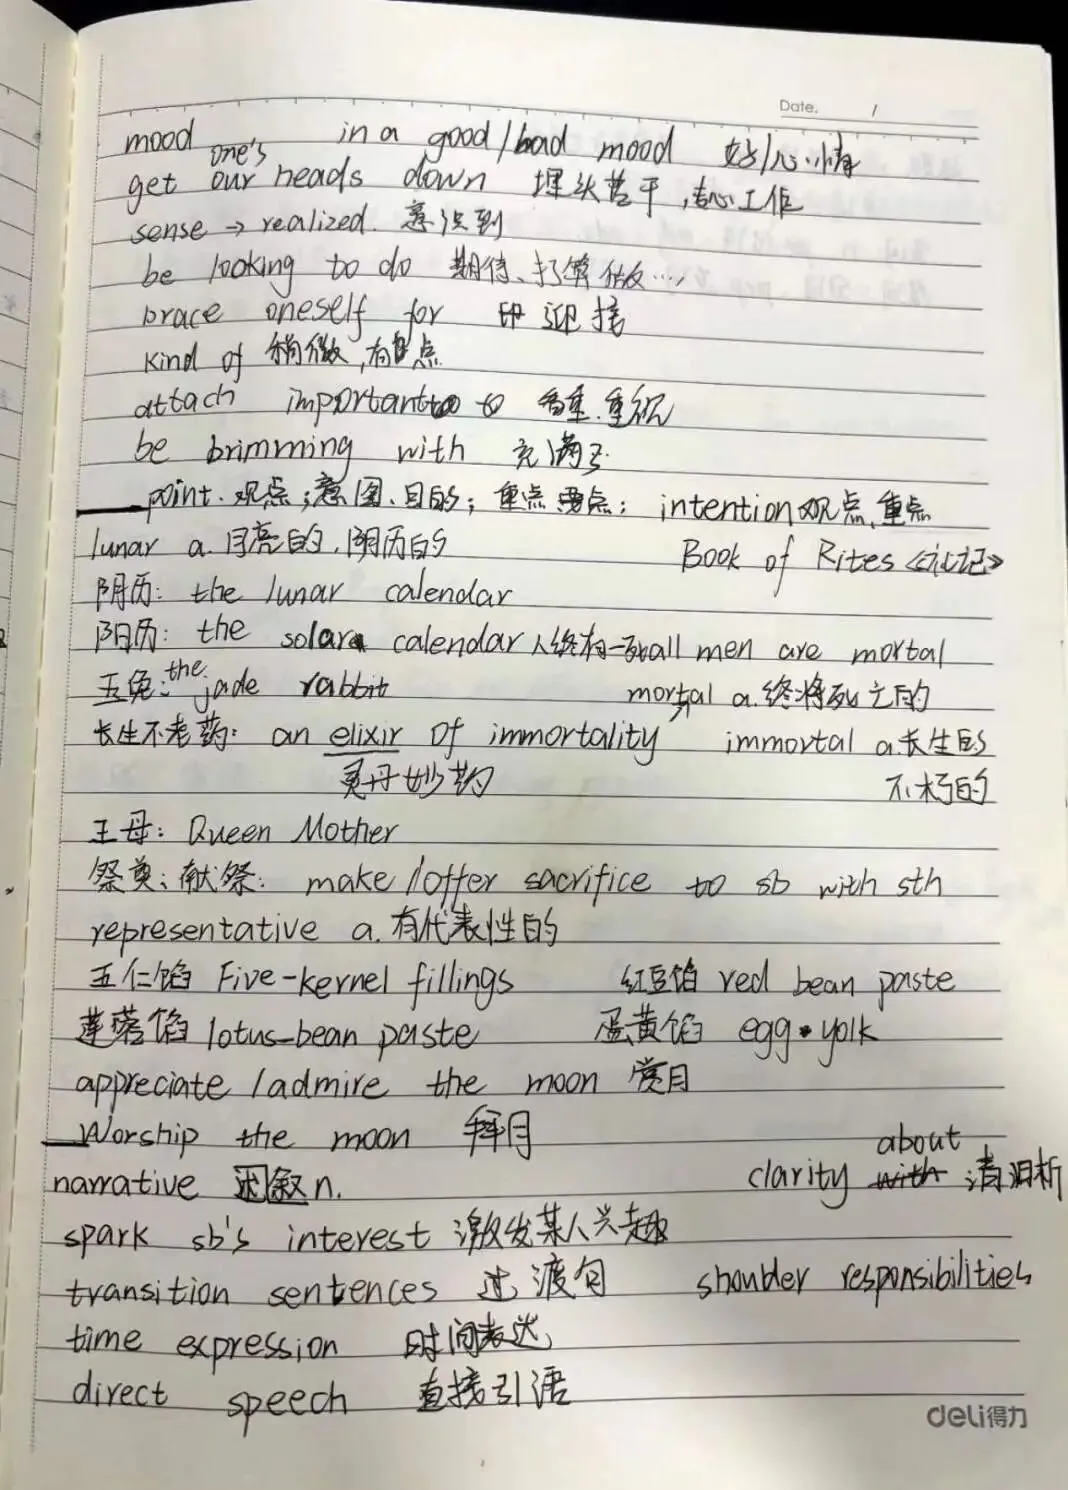 Date. /
mood in a good/bad mood 好/心情
one's
get our heads down 埋头苦干,专心工作
sense → realized. 意识到
be looking to do 期待、打算做……
brace oneself for 迎接
kind of 稍微,有点
attach important to 看重.重视
be brimming with 充满了
point.观点;意图、目的;重点 要点; intention 观点、重点
lunar a.月亮的,阴历的 Book of Rites《礼记》
阴历: the lunar calendar
阳历: the solar calendar 人终有一死 all men are mortal
玉兔: the jade rabbit mortal a.终将死亡的
长生不老药: an elixir of immortality immortal a.长生的
灵丹妙药 不朽的
王母: Queen Mother
祭奠、献祭: make/offer sacrifice to sb with sth
representative a.有代表性的
五仁馅 Five-kernel fillings 红豆馅 red bean paste
莲蓉馅 lotus-bean paste 蛋黄馅 egg yolk
appreciate/admire the moon 赏月
Worship the moon 拜月
about
narrative 记叙 n. clarity with 清晰
spark sb's interest 激发某人兴趣
transition sentences 过渡句 shoulder responsibilities
time expression 时间表达
direct speech 直接引语
deli得力